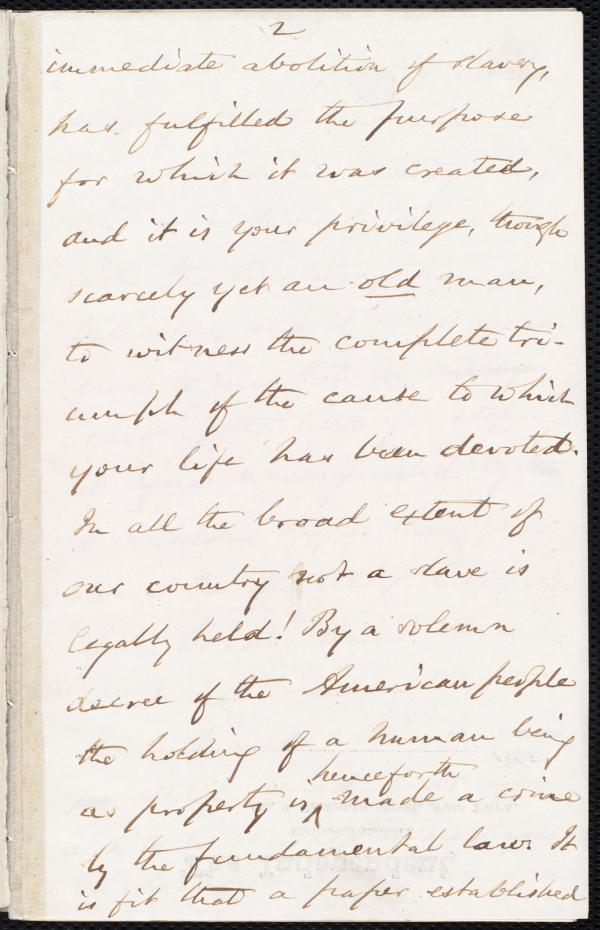 2
immediate abolition of slavery,
has fulfilled the purpose
for which it was created,
and it is your privilege, though
scarcely yet an old man,
to witness the complete tri-
umph of the cause to which
your life has been devoted.
In all the broad extent of
our country not a slave is
legally held! By a solemn
decree of the American people
the holding of a human being
henceforth
as property is ^ made a crime
by the fundamental law. It
is fit that a paper established